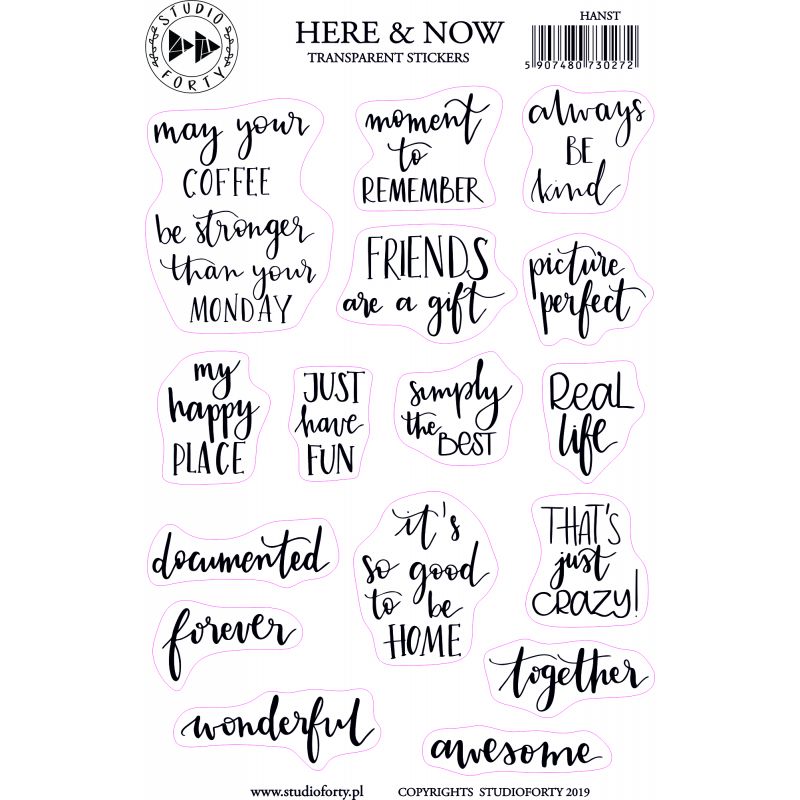 STUDIO
FORTY
HERE & NOW
TRANSPARENT STICKERS
HANST
5 907480 730272
may your
COFFEE
be stronger
than your
MONDAY
moment
to
REMEMBER
always
BE
kind
FRIENDS
are a gift
picture
perfect
my
happy
PLACE
JUST
have
FUN
simply
the BEST
Real
life
documented
it's
so good
to be
HOME
THAT'S
just
CRAZY!
forever
together
wonderful
awesome
www.studioforty.pl
COPYRIGHTS STUDIOFORTY 2019